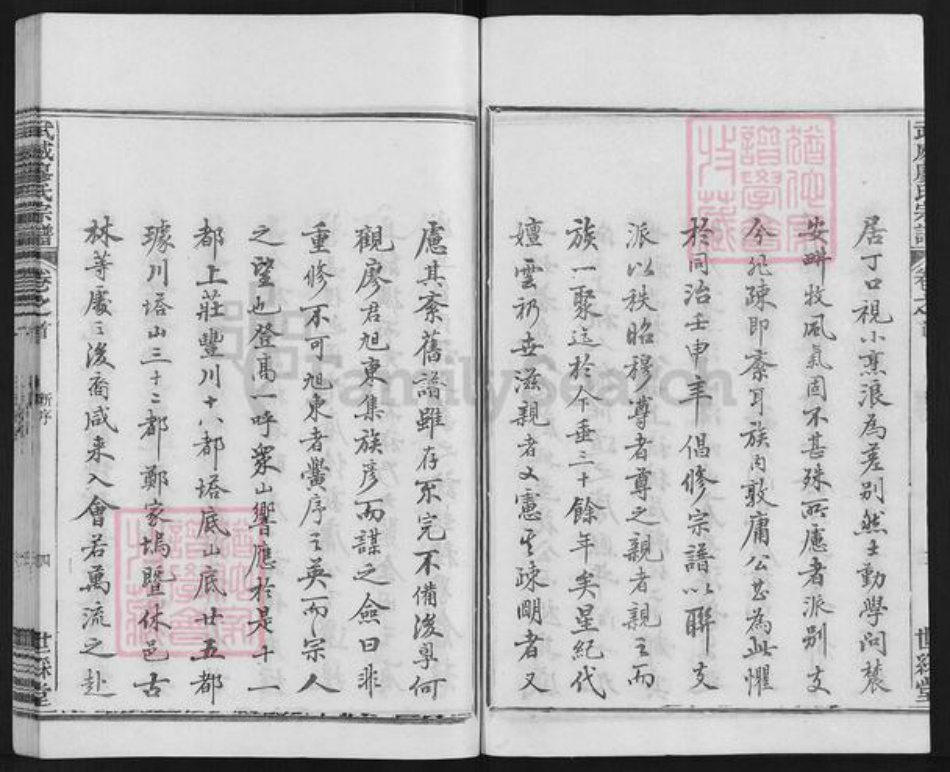 居丁口視小烹浪為差别然士勤學問農
安畊牧風氣固不甚殊所慮者派别支
今非疎即紊耳族内敦庸公甚為此懼
於同治壬申年倡修宗譜以聯支
派以秩昭穆尊者尊之親者親之而
族一聚迄於今垂三十餘年矣星紀代
嬗雲礽世滋親者又慮其疎明者又
慮其紊舊譜雖存不完不備後㝷何
觀廖君旭東集族彥而謀之僉曰非
重修不可旭東者黌序之英而宗人
之望也登高一呼衆山響應於是十一
都上莊豐川十八都塔底山底廿五都
璩川塔山三十二都鄭家塢暨休邑古
林等處之後裔咸来入會若萬流之赴
武威廖氏宗譜
卷之首
新序
四
世綵堂
武威廖氏宗譜
卷之首
世綵堂
FamilySearch